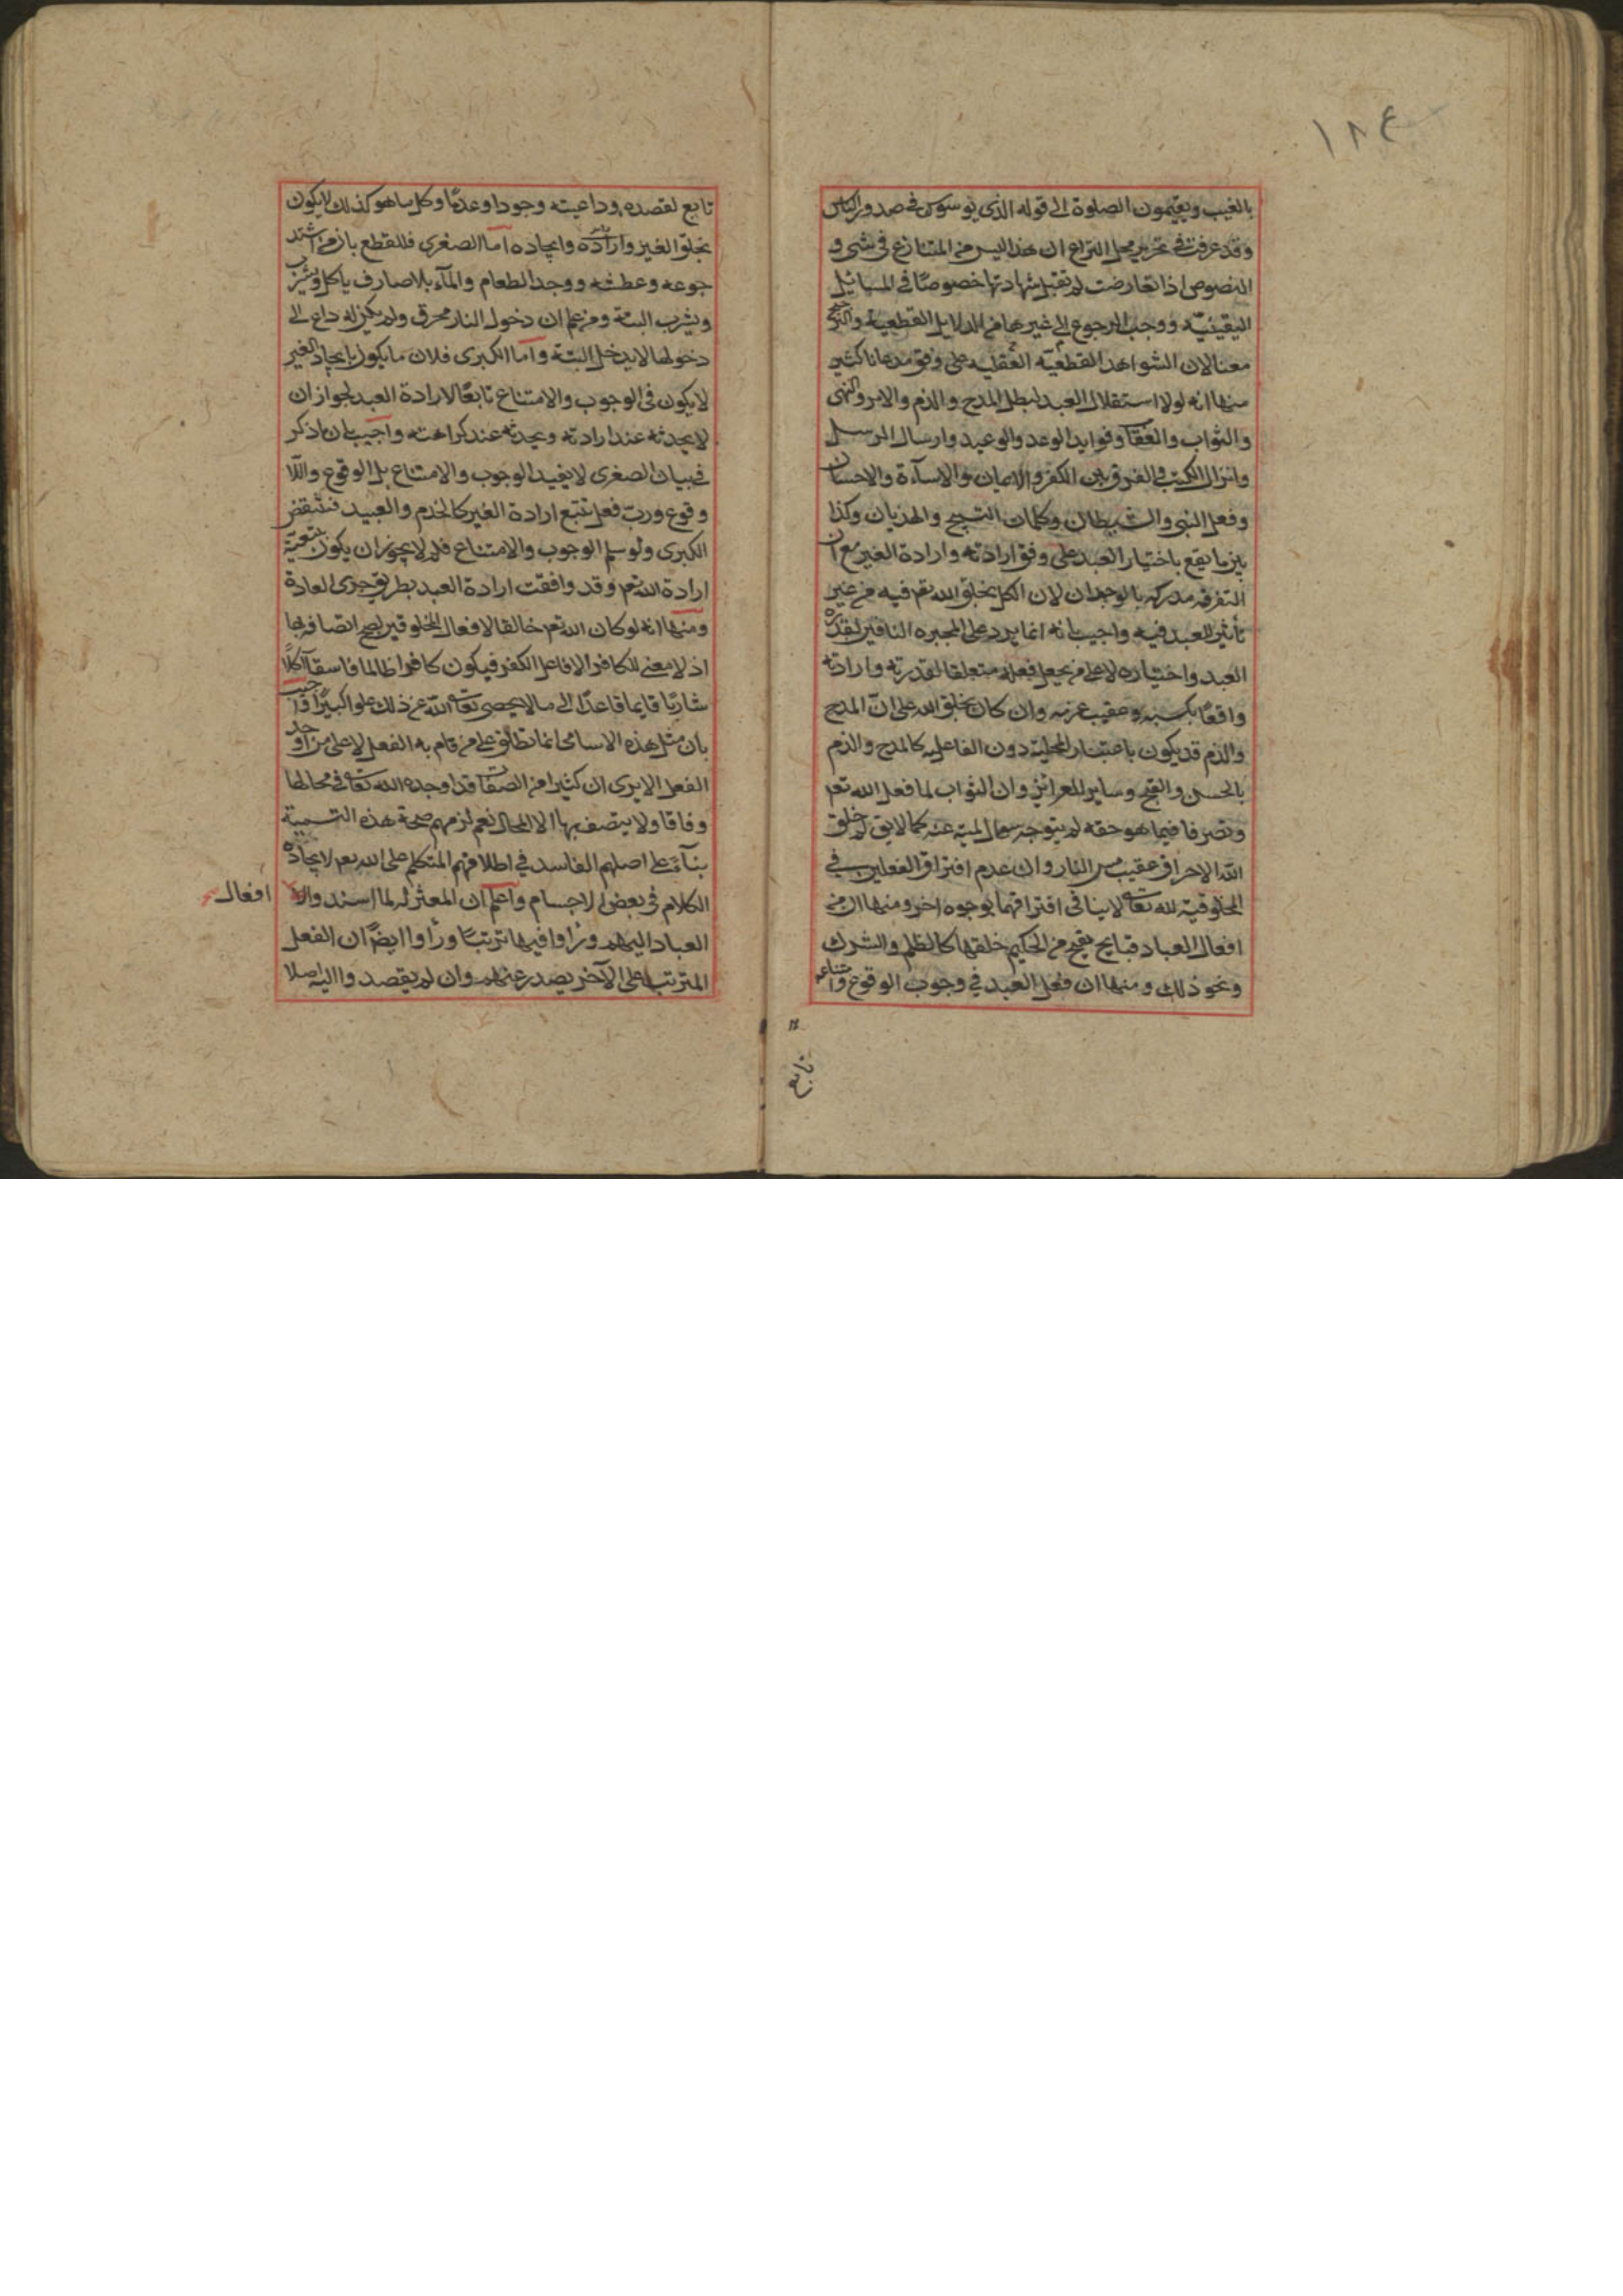 ١٨٤
بالغيب ويقيمون الصلوة الى قوله الذى يوسوس فى صدور الناس
وقد عرفت فى تحرير محل النزاع ان هذا ليس من المتنازع فى شئ و
النصوص اذا تعارضت لم تقبل شهادتها خصوصًا فى المسائيل
اليقينيّه ووجب الرجوع الى غيرها من الدلايل القطعية والترجيح
معنا لان الشواهد القطعيّه العقليه على وفق مدعانا كثير
منها انه لولا استقلال العبد لبطل المدح والذم والامر والنهى
والثواب والعقاب وفوايد الوعد والوعيد وارسال الرسل
وانزال الكتب فى الفرق بين الكفر والايمان والاسآءة والاحسان
وفعل النبى والشيطان وكلمات التسبيح والهذيان وكذا
بين ما يقع باختيار العبد على وفق ارادته وارادة الغير مع ان
التفرقه مدركه بالوجدان لان الكل بخلق الله تعم فيه من غير
تأثير للعبد فيه واجيب بانه انما يرد على المجبره النافين لقدرة
العبد واختياره لا على من يجعل فعله متعلقا لقدرته وارادته
واقعًا بكسبه وعقيب عزمه وان كان بخلق الله على انّ المدح
والذم قد يكون باعتبار المحلية دون الفاعليه كالمدح والذم
بالحسن والقبح وساير الغرائز وان الثواب لما فعل الله تعم
وتصرفا فيما هو حقه لم يتوجه سوال لميّه عنه كما لا يق لم خلق
اللّه الاحراق عقيب مس النار وان عدم افتراق الفعلين فى
المخلوقية لله تعالى لا ينافى افتراقهما بوجوه اخر ومنها ان من
افعال العباد قبايح يقبح من الحكيم خلقها كالظلم والشرك
ونحو ذلك ومنها ان فعل العبد فى وجوب الوقوع وامتناعه
تابع
تابع لقصده وداعيته وجودا وعدمًا وكل ما هو كذلك لا يكون
بخلق الغير وارادته وايجاده اما الصغرى فللقطع بان من اشتد
جوعه وعطشه ووجد الطعام والمآء بلا صارف ياكل ويشرب
ويشرب البتة ومن علم ان دخول النار محرق ولم يكن له داع الى
دخولها لا يدخل البتة واما الكبرى فلان ما يكون بايجاد الغير
لا يكون فى الوجوب والامتناع تابعًا لارادة العبد لجواز ان
لا يحدثه عند ارادته ويحدثه عند كراهته واجيب بان ما ذكر
فى بيان الصغرى لا يفيد الوجوب والامتناع بل الوقوع واللا
وقوع وربّ فعل تتبع ارادة الغير كالخدم والعبيد فتنتقض
الكبرى ولو سلم الوجوب والامتناع فلم لا يجوز ان يكون بتبعيّة
ارادة اللّه تعم وقد وافقت ارادة العبد بطريق جرى العادة
ومنها انه لو كان الله تعم خالقا لافعال المخلوقين لصح اتصافه بها
اذ لا معنى للكافر الا فاعل الكفر فيكون كافرا ظالما فاسقا آكلًا
شاربًا قايما قاعدًا الى ما لا يحصى تعالى اللّه عن ذلك علوا كبيرًا واجيب
بان مثل هذه الاسامى انما تطلق على من قام به الفعل لا على من اوجد
الفعل الا يرى ان كثيرا من الصفات قد اوجده الله تعالى فى محالها
وفاقا ولا يتصف بها الا المحال نعم لزمهم صحة هذه التسمية
بنآءً على اصلهم الفاسد فى اطلاقهم المتكلم على الله تعم لايجاده
الكلام فى بعض الاجسام واعلم ان المعتزله لما اسندوا
افعال
العباد اليهم وراوا فيها ترتبًا وراوا ايضًا ان الفعل
المترتب على الآخر يصدر عنهم وان لم يقصدوا اليه اصلا